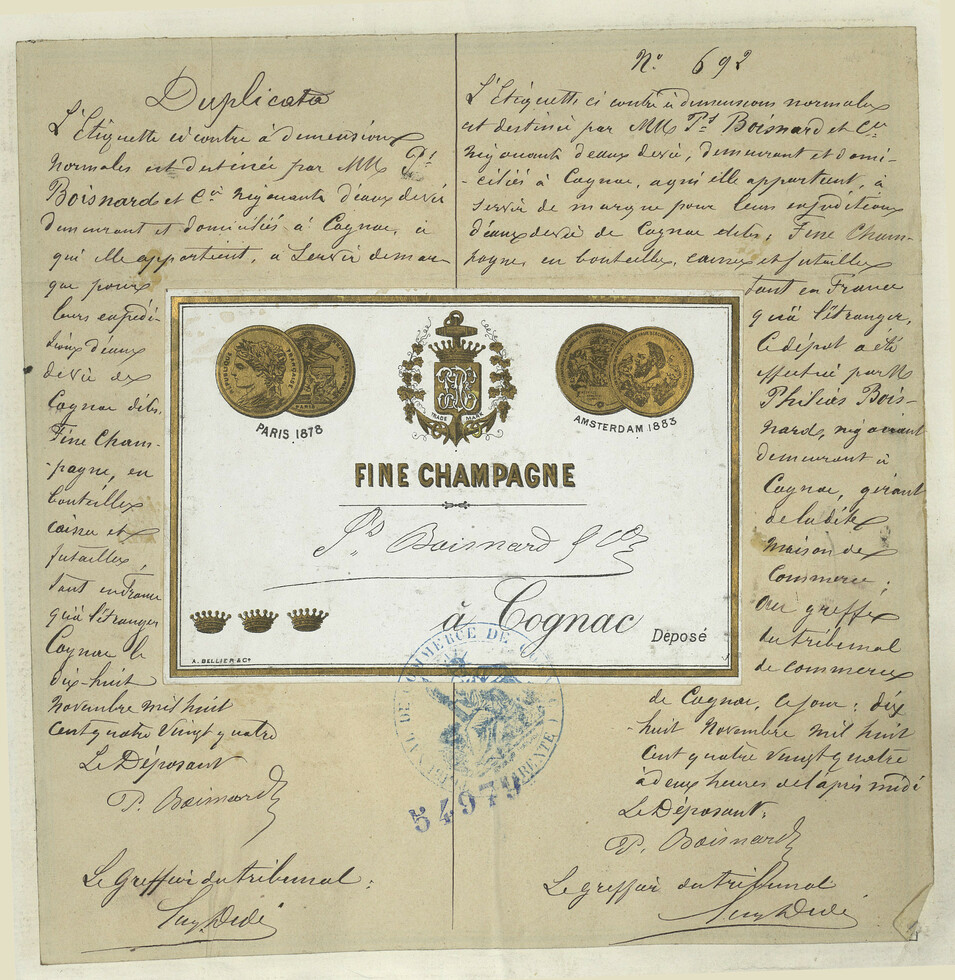 Duplicata
L'Etiquette ci contre à dimensions
normales est destinée par MM Ps
Boisnard et Cie négociants d'eaux de vie
demeurant et domiciliés à Cognac, à
qui elle appartient, à servir de mar
que pour
leurs expédi-
tions d'eaux
de vie de
Cognac dites
Fine Cham-
-pagne, en
bouteilles
caisses et
futailles,
tant en France
qu'à l'étranger
Cognac le
dix-huit
novembre mil huit
cent quatre vingt quatre
Le Déposant
P. Boisnard
Le Greffier du tribunal:
No 692
L'Etiquette ci contre à dimensions normales
est destinée par MM Ps Boisnard et Cie
négociants d'eaux de vie, demeurant et domi-
-ciliés à Cognac, à qui elle appartient, à
servir de marque pour leurs expéditions
d'eaux de vie de Cognac dites, Fine Cham-
pagne, en bouteilles, caisses et futailles
tant en France
qu'à l'étranger,
Ce dépôt a été
effectué par M
Philéas Bois-
nard, négociant
demeurant à
Cognac, gérant
de la dite
maison de
Commerce.
Au greffe
du tribunal
de commerce
de Cognac, ce jour: dix
huit Novembre mil huit
cent quatre vingt quatre
à deux heures de l'après midi
Le Déposant:
P. Boisnard
Le Greffier du tribunal
RÉPUBLIQUE FRANÇAISE
PARIS
PARIS 1878
TRADE MARK
AMSTERDAM 1883
FINE CHAMPAGNE
Ps Boisnard & Cie
à Cognac
Déposé
A. BELLIER & Cie
COMMERCE DE
54979